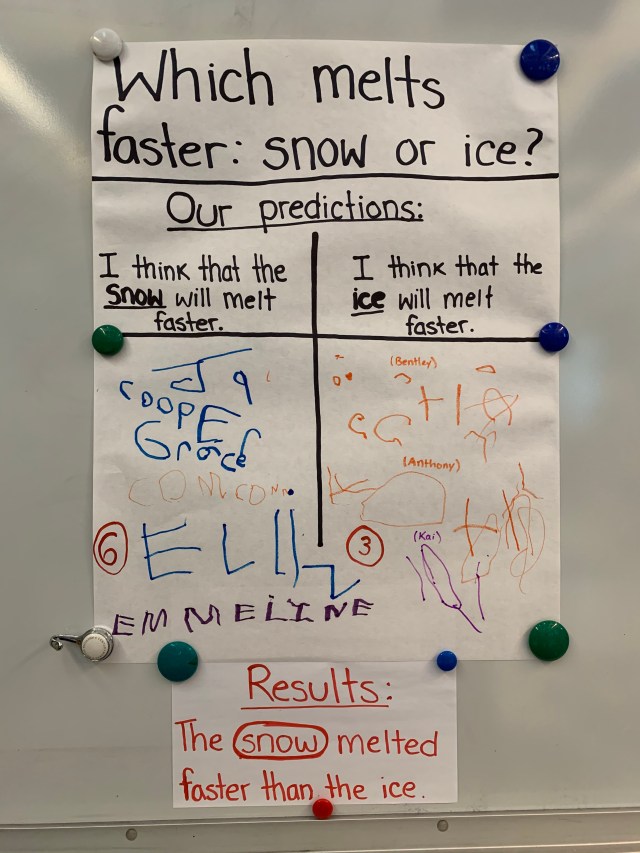 Which melts
faster: snow or ice?
Our predictions:
I think that the
snow will melt
faster.
COOPE
Grace
6
EMMELINE
I think that the
ice will melt
faster.
(Bentley)
(Anthony)
3
(Kai)
Results:
The snow melted
faster than the ice.